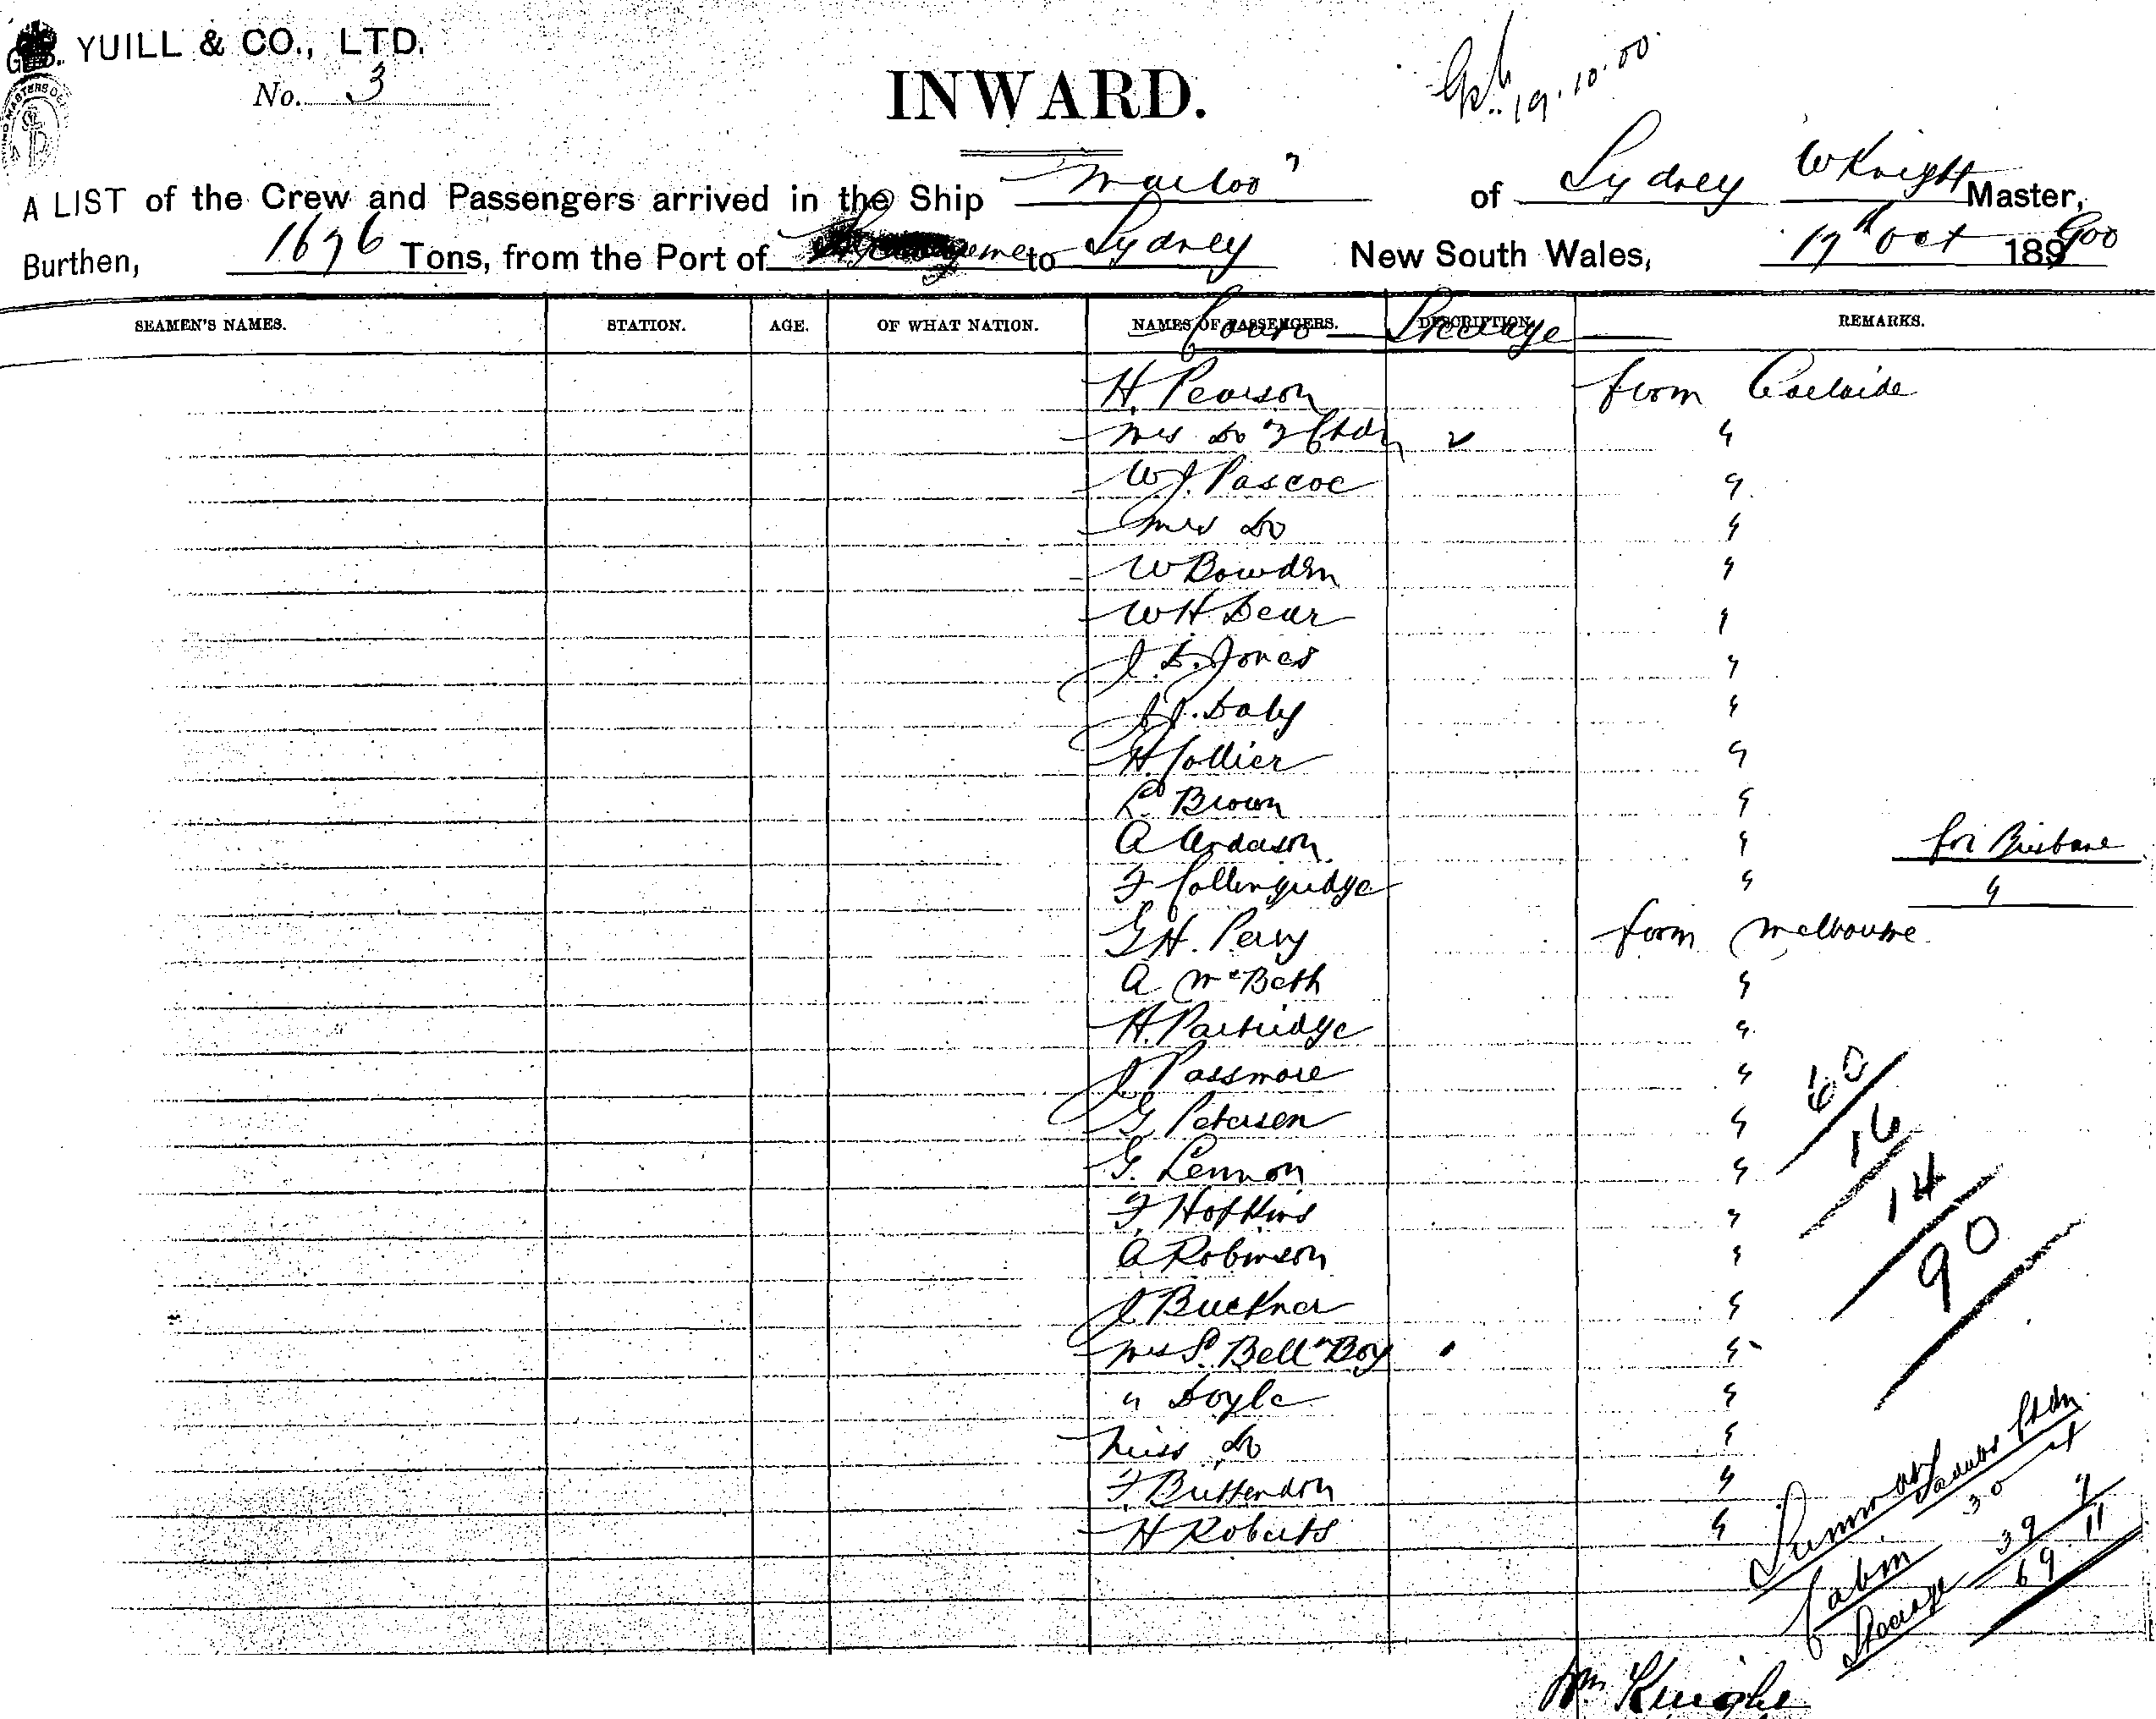 G.S. YUILL & CO., LTD.
No. 3
INWARD.
19.10.00
A LIST of the Crew and Passengers arrived in the Ship "Marloo" of Sydney W Knight Master,
Burthen, 1676 Tons, from the Port of to Sydney New South Wales, 19th Oct 1900
SEAMEN'S NAMES. STATION. AGE. OF WHAT NATION. NAMES OF PASSENGERS. DESCRIPTION. REMARKS.
Steerage
H. Pearson from Adelaide
Mrs Do & Chdn 2 "
W J. Pascoe "
Mrs Do "
W Bowden "
W H Dear "
J. D. Jones "
J J. Daly "
H. Collier "
L. Brown "
A Anderson " for Brisbane
F Collingridge " "
G H. Perry from Melbourne
A McBeth "
H. Partridge "
J Passmore "
G. Petersen "
G. Lennon "
F. Hopkins "
A Robinson "
J Buckner "
Mrs S. Bell & Boy 1 "
" Doyle "
Miss Do "
F. Buttendon "
H Roberts "
60
16
14
90
Summary Adults Chdn
Cabin 30 4
Steerage 39 7
69 11
Wm Knight